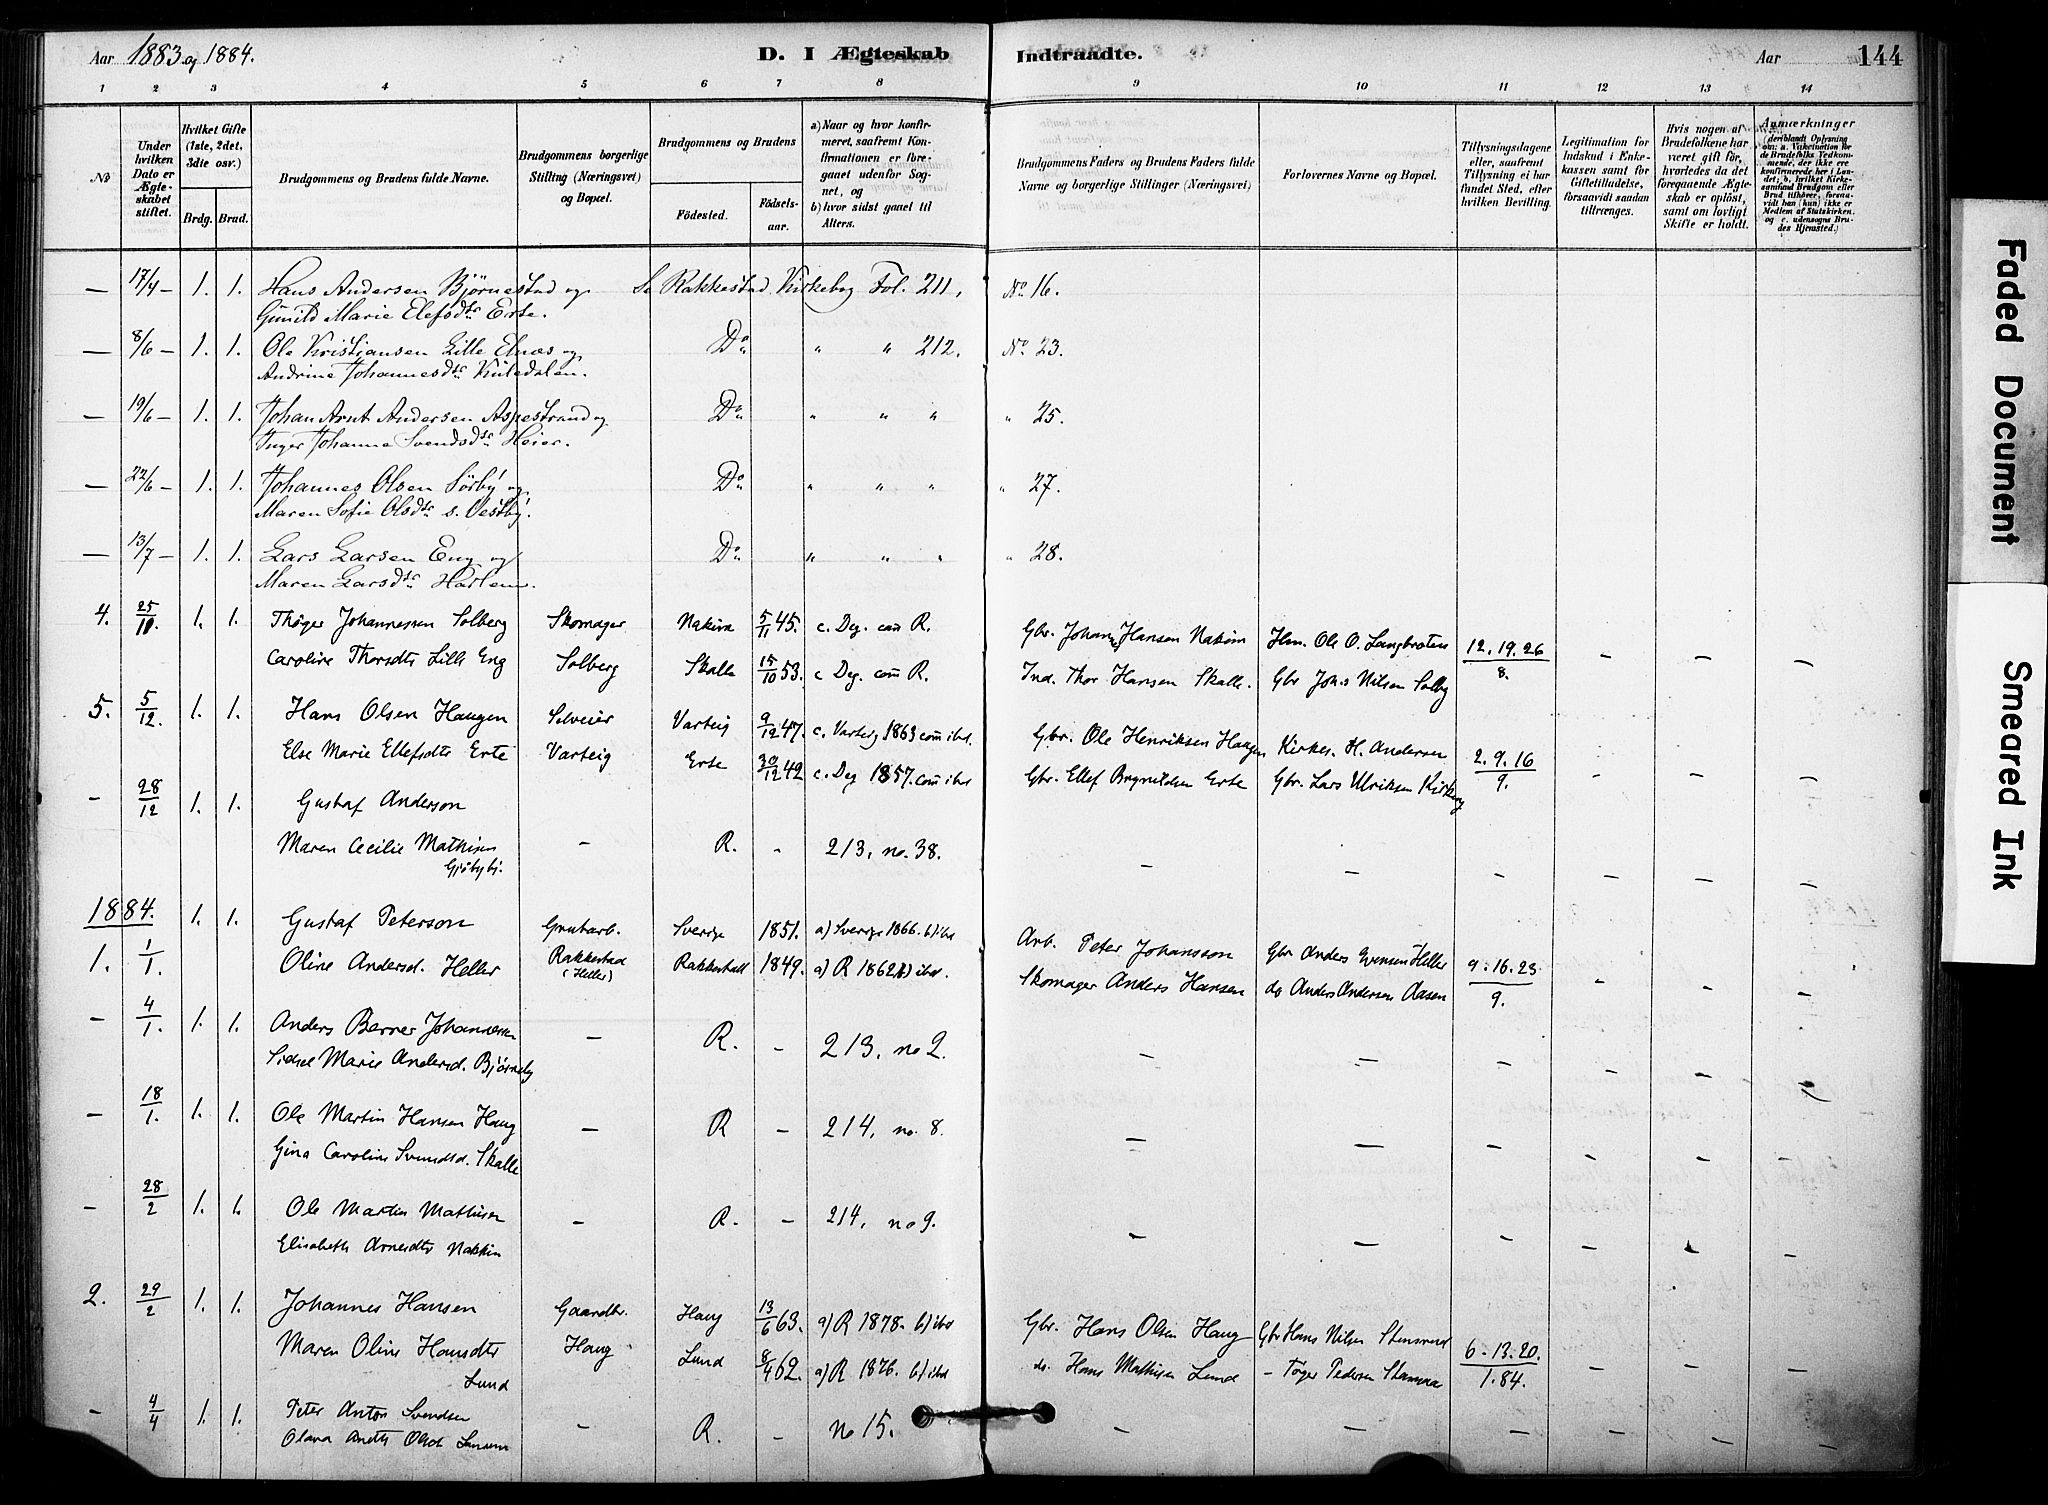 Aar 1883 og 1884. D. I Ægteskab Indtraadte. Aar 144
1 2 3 4 5 6 7 8 9 10 11 12 13 14
No
Under hvilken Dato er Ægteskabet stiftet.
Hvilket Gifte (1ste, 2det, 3die osv.)
Brdg. Brud.
Brudgommens og Brudens fulde Navne.
Brudgommens borgerlige Stilling (Næringsvei) og Bopæl.
Brudgommens og Brudens
Fødested. Fødselsaar.
a) Naar og hvor konfirmeret, saafremt Konfirmationen er foregaaet udenfor Sognet, og
b) hvor sidst gaaet til Alters.
Brudgommens Faders og Brudens Faders fulde Navne og borgerlige Stillinger (Næringsvei)
Forlovernes Navne og Bopæl.
Tillysningsdagene eller, saafremt Tillysning ei har fundet Sted, efter hvilken Bevilling.
Legitimation for Indskud i Enkekassen samt for Giftetilladelse, forsaavidt saadan tiltrænges.
Hvis nogen af Brudefolkene har været gift før, hvorledes da det foregaaende Ægteskab er opløst, samt om lovligt Skifte er holdt.
Anmærkninger (deriblandt Oplysning om: a. Vakcination for de Brudefolks Vedkommende, der ikke ere konfirmerede her i Landet; b. hvilket Kirkesamfund Brudgom eller Brud tilhører, forsaavidt han (hun) ikke er Medlem af Statskirken. og c. udensogns Brudes Hjemsted.)
— 17/4 — 1. 1. Hans Andersen Bjørnestad og Se Rakkestad Kirkebog Fol. 211, No 16.
Gunild Marie Elefsdtr Erte.
— 8/6 — 1. 1. Ole Kristiansen Lille Elnæs og Do " " 212. No 23.
Andrine Johannesdtr Kuledalen.
— 19/6 — 1. 1. Johan Arnt Andersen Aspestrand og Do " " " " 25.
Inger Johanne Svendsdtr Heier.
— 22/6 — 1. 1. Johannes Olsen Sørby og Do " " " " 27.
Maren Sofie Olsdtr s. Vestby.
— 13/7 — 1. 1. Lars Larsen Eng og Do " " " " 28.
Maren Larsdtr Harlem.
4. 25/10 1. 1. Thøger Johannessen Solberg Skomager Nakim 5/11 45. c. Deg. com R. Gbr. Johans Hansen Nakim Hm. Ole O. Langbraten 12. 19. 26
Caroline Thorsdtr Lille Eng Solberg Skalle 15/10 53. c. Deg. com R. Ind. Thor Hansen Skalle. Gbr Johs Nilsen Solby 8. — — —
5. 5/12. 1. 1. Hans Olsen Haugen Selveier Varteig 9/12 47. c. Varteig 1863 com ibd. Gbr. Ole Henriksen Haugen Kirkes. H. Andersen 2. 9. 16
Else Marie Ellefsdtr Erte Varteig Erte 30/12 42 c. Deg 1857. com ibd Gbr. Ellef Brynildsen Erte Gbr. Lars Ulriksen Kirkeng 9. — — —
- 28/12 1. 1. Gustaf Anderson
Maren Cecilie Mathisen — R. - 213, no. 38. — — — — — —
Gjøbybj.
1884. 1. 1. Gustaf Peterson Grubarb. Sverige 1851. a) Sverige 1866. b) ibd Arb. Peter Johansson Gbr Anders Evensen Heller 9. 16. 23
1. 1/1. Oline Andersd. Heller Rakkestad (Heller) Rakkestad 1849. a) R 1862 b) ibd. Skomager Anders Hansen do Anders Andersen Aasen 9. — — —
- 4/1. 1. 1. Anders Berner Johannessen — R. - 213, no 2. — — — — — —
Sidsel Marie Andersd. Bjørneby
- 18/1. 1. 1. Ole Martin Hansen Haug — R - 214, no. 8. — — — — — —
Gina Caroline Svendsd. Skalle
- 28/2 1. 1. Ole Martin Mathisen — R. - 214, no 9. — — — — — —
Elisabeth Arnesdtr Nakkim
2. 29/2 1. 1. Johannes Hansen Gaardbr. Haug 13/6 63. a) R 1878. b) ibd Gbr. Hans Olsen Haug Gbr Hans Nilsen Stensrud 6. 13. 20.
Maren Oline Hansdtr Haug Lund 8/4 62. a) R 1876. b) ibd do. Hans Mathisen Lund - Tøger Pedersen 1. 84. — — —
Lund
- 4/4 1. 1. Peter Anton Svendsen — R. - no 15. — — — — — —
Olava Aneth Olsd.
Faded Document
Smeared Ink